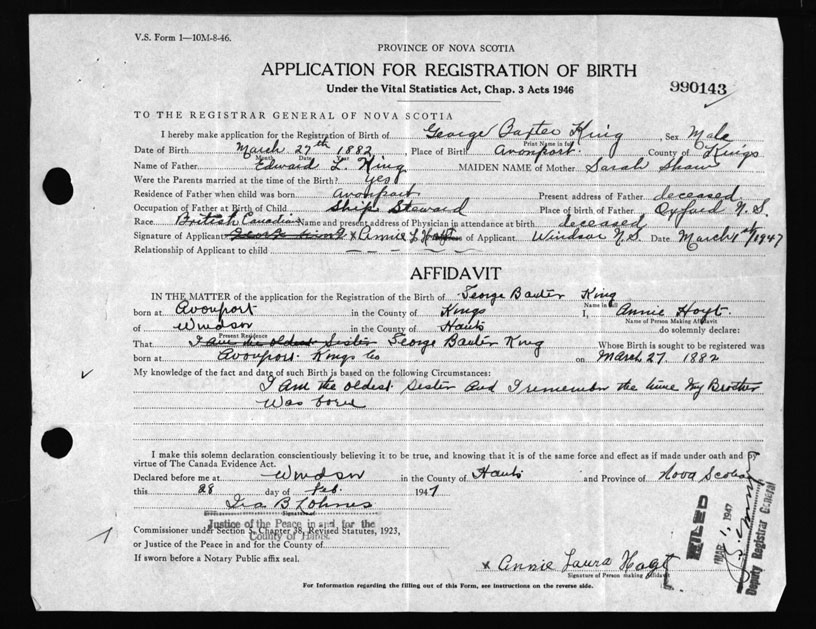 V.S. Form 1—10M-8-46.
PROVINCE OF NOVA SCOTIA
APPLICATION FOR REGISTRATION OF BIRTH
Under the Vital Statistics Act, Chap. 3 Acts 1946
990143
TO THE REGISTRAR GENERAL OF NOVA SCOTIA
I hereby make application for the Registration of Birth of George Baxter King, Sex Male
Print Name in full
Date of Birth March 27th 1882, Place of Birth Avonport. County of Kings
Month Date Year
Name of Father Edward L. King MAIDEN NAME of Mother Sarah Shaw
Were the Parents married at the time of the Birth? yes
Residence of Father when child was born Avonport Present address of Father deceased.
Occupation of Father at Birth of Child Ship Steward Place of birth of Father Oxford N.S.
Race British Canadian Name and present address of Physician in attendance at birth deceased
Signature of Applicant George King x Annie L Hoyt of Applicant Windsor N.S. Date March 1st/1947
Relationship of Applicant to child
AFFIDAVIT
IN THE MATTER of the application for the Registration of the Birth of George Baxter King
Name in full
born at Avonport in the County of Kings I, Annie Hoyt.
Name of Person Making Affidavit
of Windsor in the County of Hants do solemnly declare:
Present Residence
That I am the oldest Sister George Baxter King Whose Birth is sought to be registered was
born at Avonport. Kings Co on March 27 1882
My knowledge of the fact and date of such Birth is based on the following Circumstances:
I Am the oldest Sister And I remember the time My Brother
Was born
I make this solemn declaration conscientiously believing it to be true, and knowing that it is of the same force and effect as if made under oath and by
virtue of The Canada Evidence Act.
Declared before me at Windsor in the County of Hants and Province of Nova Scotia
this 28 day of Feb. 1947
Ira B Lohnes
Signature of
Justice of the Peace in and for the
County of Hants.
Commissioner under Section 3, Chapter 38, Revised Statutes, 1923,
or Justice of the Peace in and for the County of
If sworn before a Notary Public affix seal.
x Annie Laura Hoyt
Signature of Person making Affidavit
For Information regarding the filling out of this Form, see instructions on the reverse side.
FILED
MAR 1, 1947
Deputy Registrar General